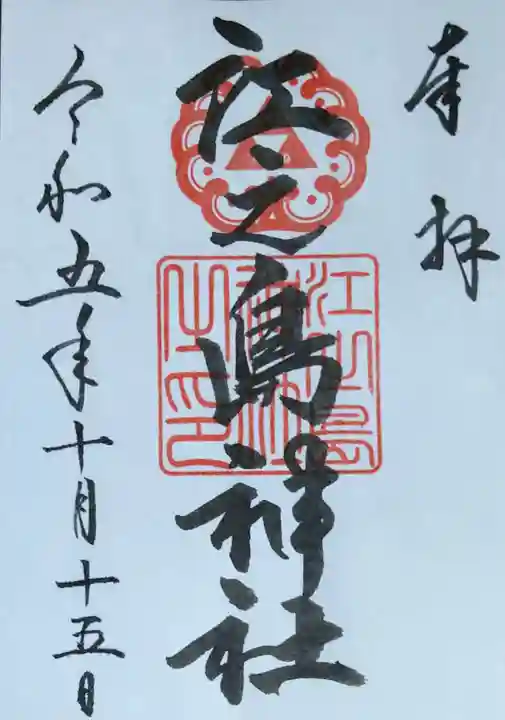 奉拝
江之島神社
江島神社之印
令和五年十月十五日